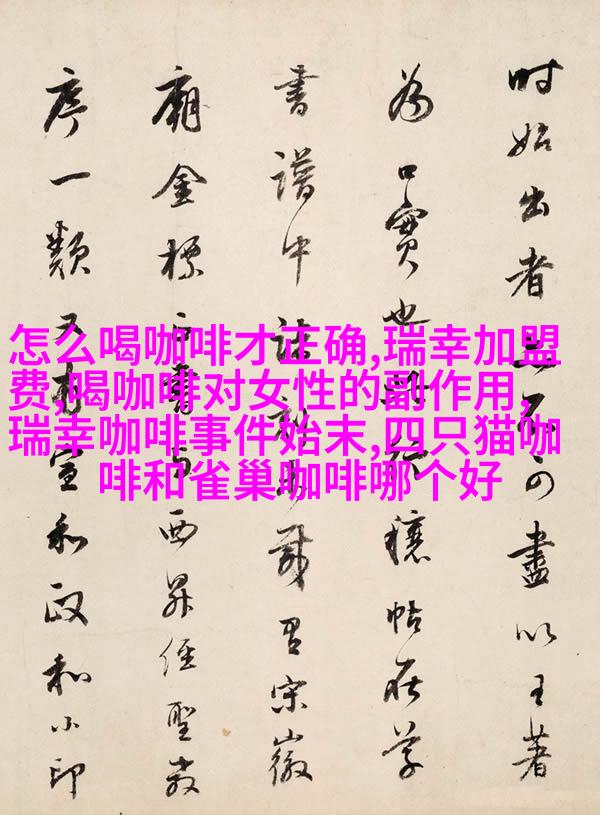 怎么喝咖啡才正确,瑞幸加盟
费,喝咖啡对女性的副作用,
瑞幸咖啡事件始末,四只猫咖
啡和雀巢咖啡哪个好
时始出者可盡以王著
為口實也穰帖在学
書譜中語宋徽
廟金標書与西昇经聖教
序一類又有宣和政和小印